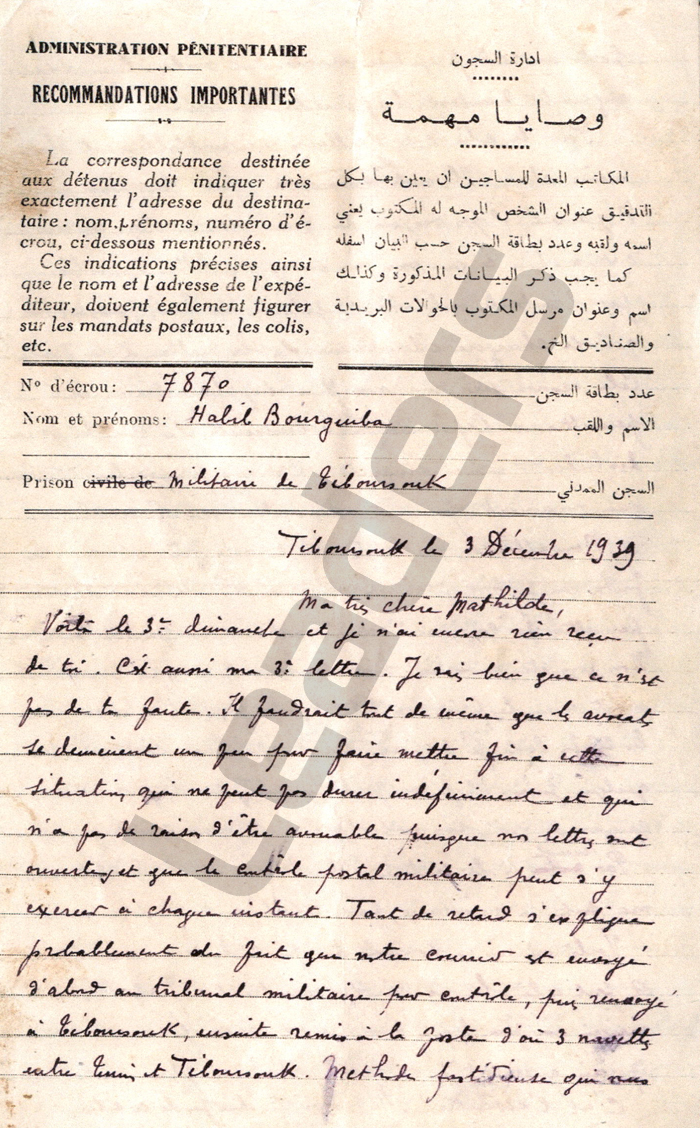 ADMINISTRATION PÉNITENTIAIRE
RECOMMANDATIONS IMPORTANTES
La correspondance destinée
aux détenus doit indiquer très
exactement l'adresse du destina-
taire : nom, prénoms, numéro d'é-
crou, ci-dessous mentionnés.
Ces indications précises ainsi
que le nom et l'adresse de l'expé-
diteur, doivent également figurer
sur les mandats postaux, les colis,
etc.
ادارة السجون
وصايا مهمة
المكاتب المعدة للمساجين ان يعين بها بكل
التدقيق عنوان الشخص الموجه له المكتوب يعني
اسمه ولقبه وعدد بطاقة السجن حسب البيان اسفله
كما يجب ذكر البيانات المذكورة وكذلك
اسم وعنوان مرسل المكتوب بالحوالات البريدية
والصناديق الخ.
Nº d'écrou : 7870 عدد بطاقة السجن
Nom et prénoms : Habib Bourguiba الاسم واللقب
Prison civile de Militaire de Téboursouk السجن المدني
Tiboursouk le 3 Décembre 1939
Ma très chère Mathilde,
Voilà le 3e dimanche et je n'ai encore rien reçu
de toi. C'est aussi ma 3e lettre. Je sais bien que ce n'est
pas de ta faute. Il faudrait tout de même que les avocats
se démènent un peu pour faire mettre fin à cette
situation qui ne peut pas durer indéfiniment et qui
n'a pas de raison d'être avouable puisque nos lettres sont
ouvertes et que le contrôle postal militaire peut s'y
exercer à chaque instant. Tant de retard s'explique
probablement du fait que notre courrier est envoyé
d'abord au tribunal militaire pour contrôle, puis renvoyé
à Téboursouk, ensuite remis à la poste d'où 3 navettes
entre Tunis et Téboursouk. Méthode fastidieuse qui nous
Leaders